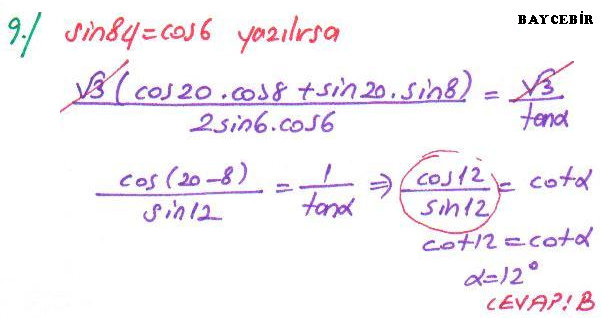 BAYCEBİR
9./ sin84=cos6 yazılırsa
√3(cos20.cos8+sin20.sin8) / 2sin6.cos6 = √3 / tanα
cos(20-8) / sin12 = 1 / tanα ⇒ cos12 / sin12 = cotα
cot12=cotα
α=12°
CEVAP: B